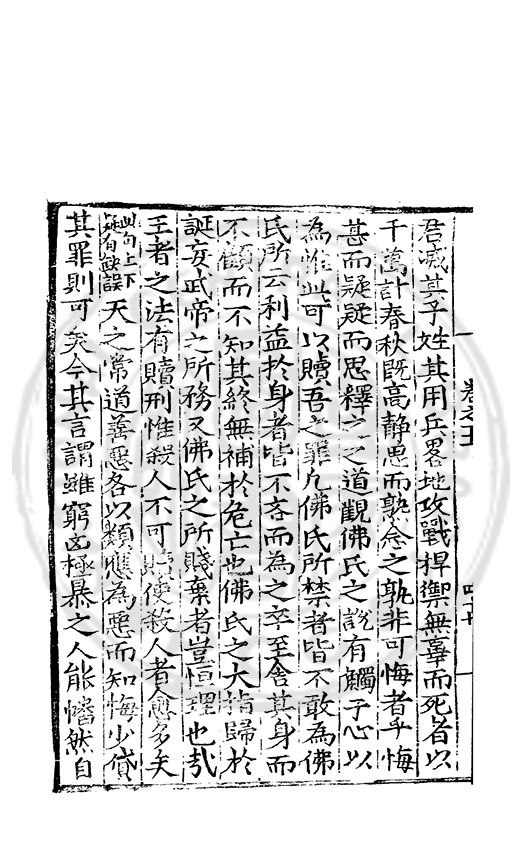 君滅其子姓其用兵畧地攻戰捍禦無辜而死者以
千萬計春秋旣高静思而熟念之孰非可悔者乎悔
甚而疑疑而思釋之之道觀佛氏之說有觸予心以
為惟此可以贖吾之罪凡佛氏所禁者皆不敢為佛
氏所云利益扵身者皆不吝而為之卒至舍其身而
不顧而不知其終無補扵危亡也佛氏之大指歸扵
誕妄武帝之所務又佛氏之所賤棄者豈恒理也㢤
王者之法有贖刑惟殺人不可贖使殺人者愈多矣
此句上下
疑有缺誤
天之常道善惡各以類應為惡而知悔少貸
其罪則可矣今其言謂雖窮凶極暴之人能幡然自
卷之五